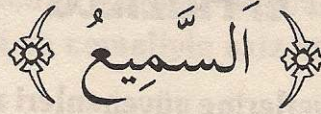 ﴿ اَلسَّمِيعُ ﴾